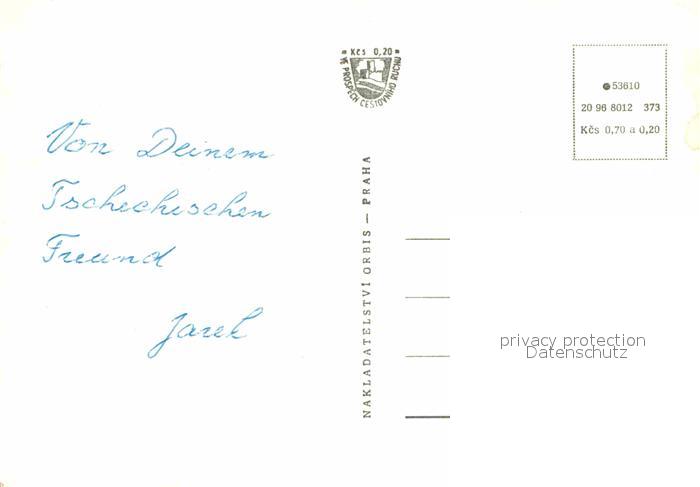 Von Deinem
Tschechischen
Freund
Jarek
Kčs 0,20
VE PROSPĚCH CESTOVNÍHO RUCHU
NAKLADATELSTVÍ ORBIS — PRAHA
53610
20 96 8012 373
Kčs 0,70 a 0,20
privacy protection
Datenschutz